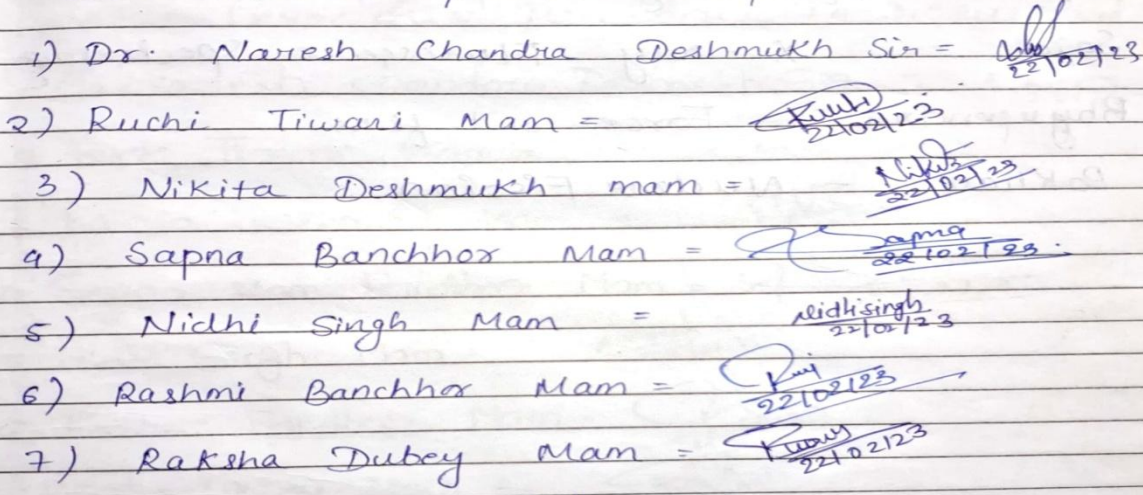 1) Dr. Naresh Chandra Deshmukh Sir = 22/02/23
2) Ruchi Tiwari Mam = Ruchi 22/02/23
3) Nikita Deshmukh mam = Nikita 22/02/23
4) Sapna Banchhor Mam = Sapna 22/02/23.
5) Nidhi Singh Mam = Nidhi singh 22/02/23
6) Rashmi Banchhor Mam = 22/02/23
7) Raksha Dubey Mam = 22/02/23